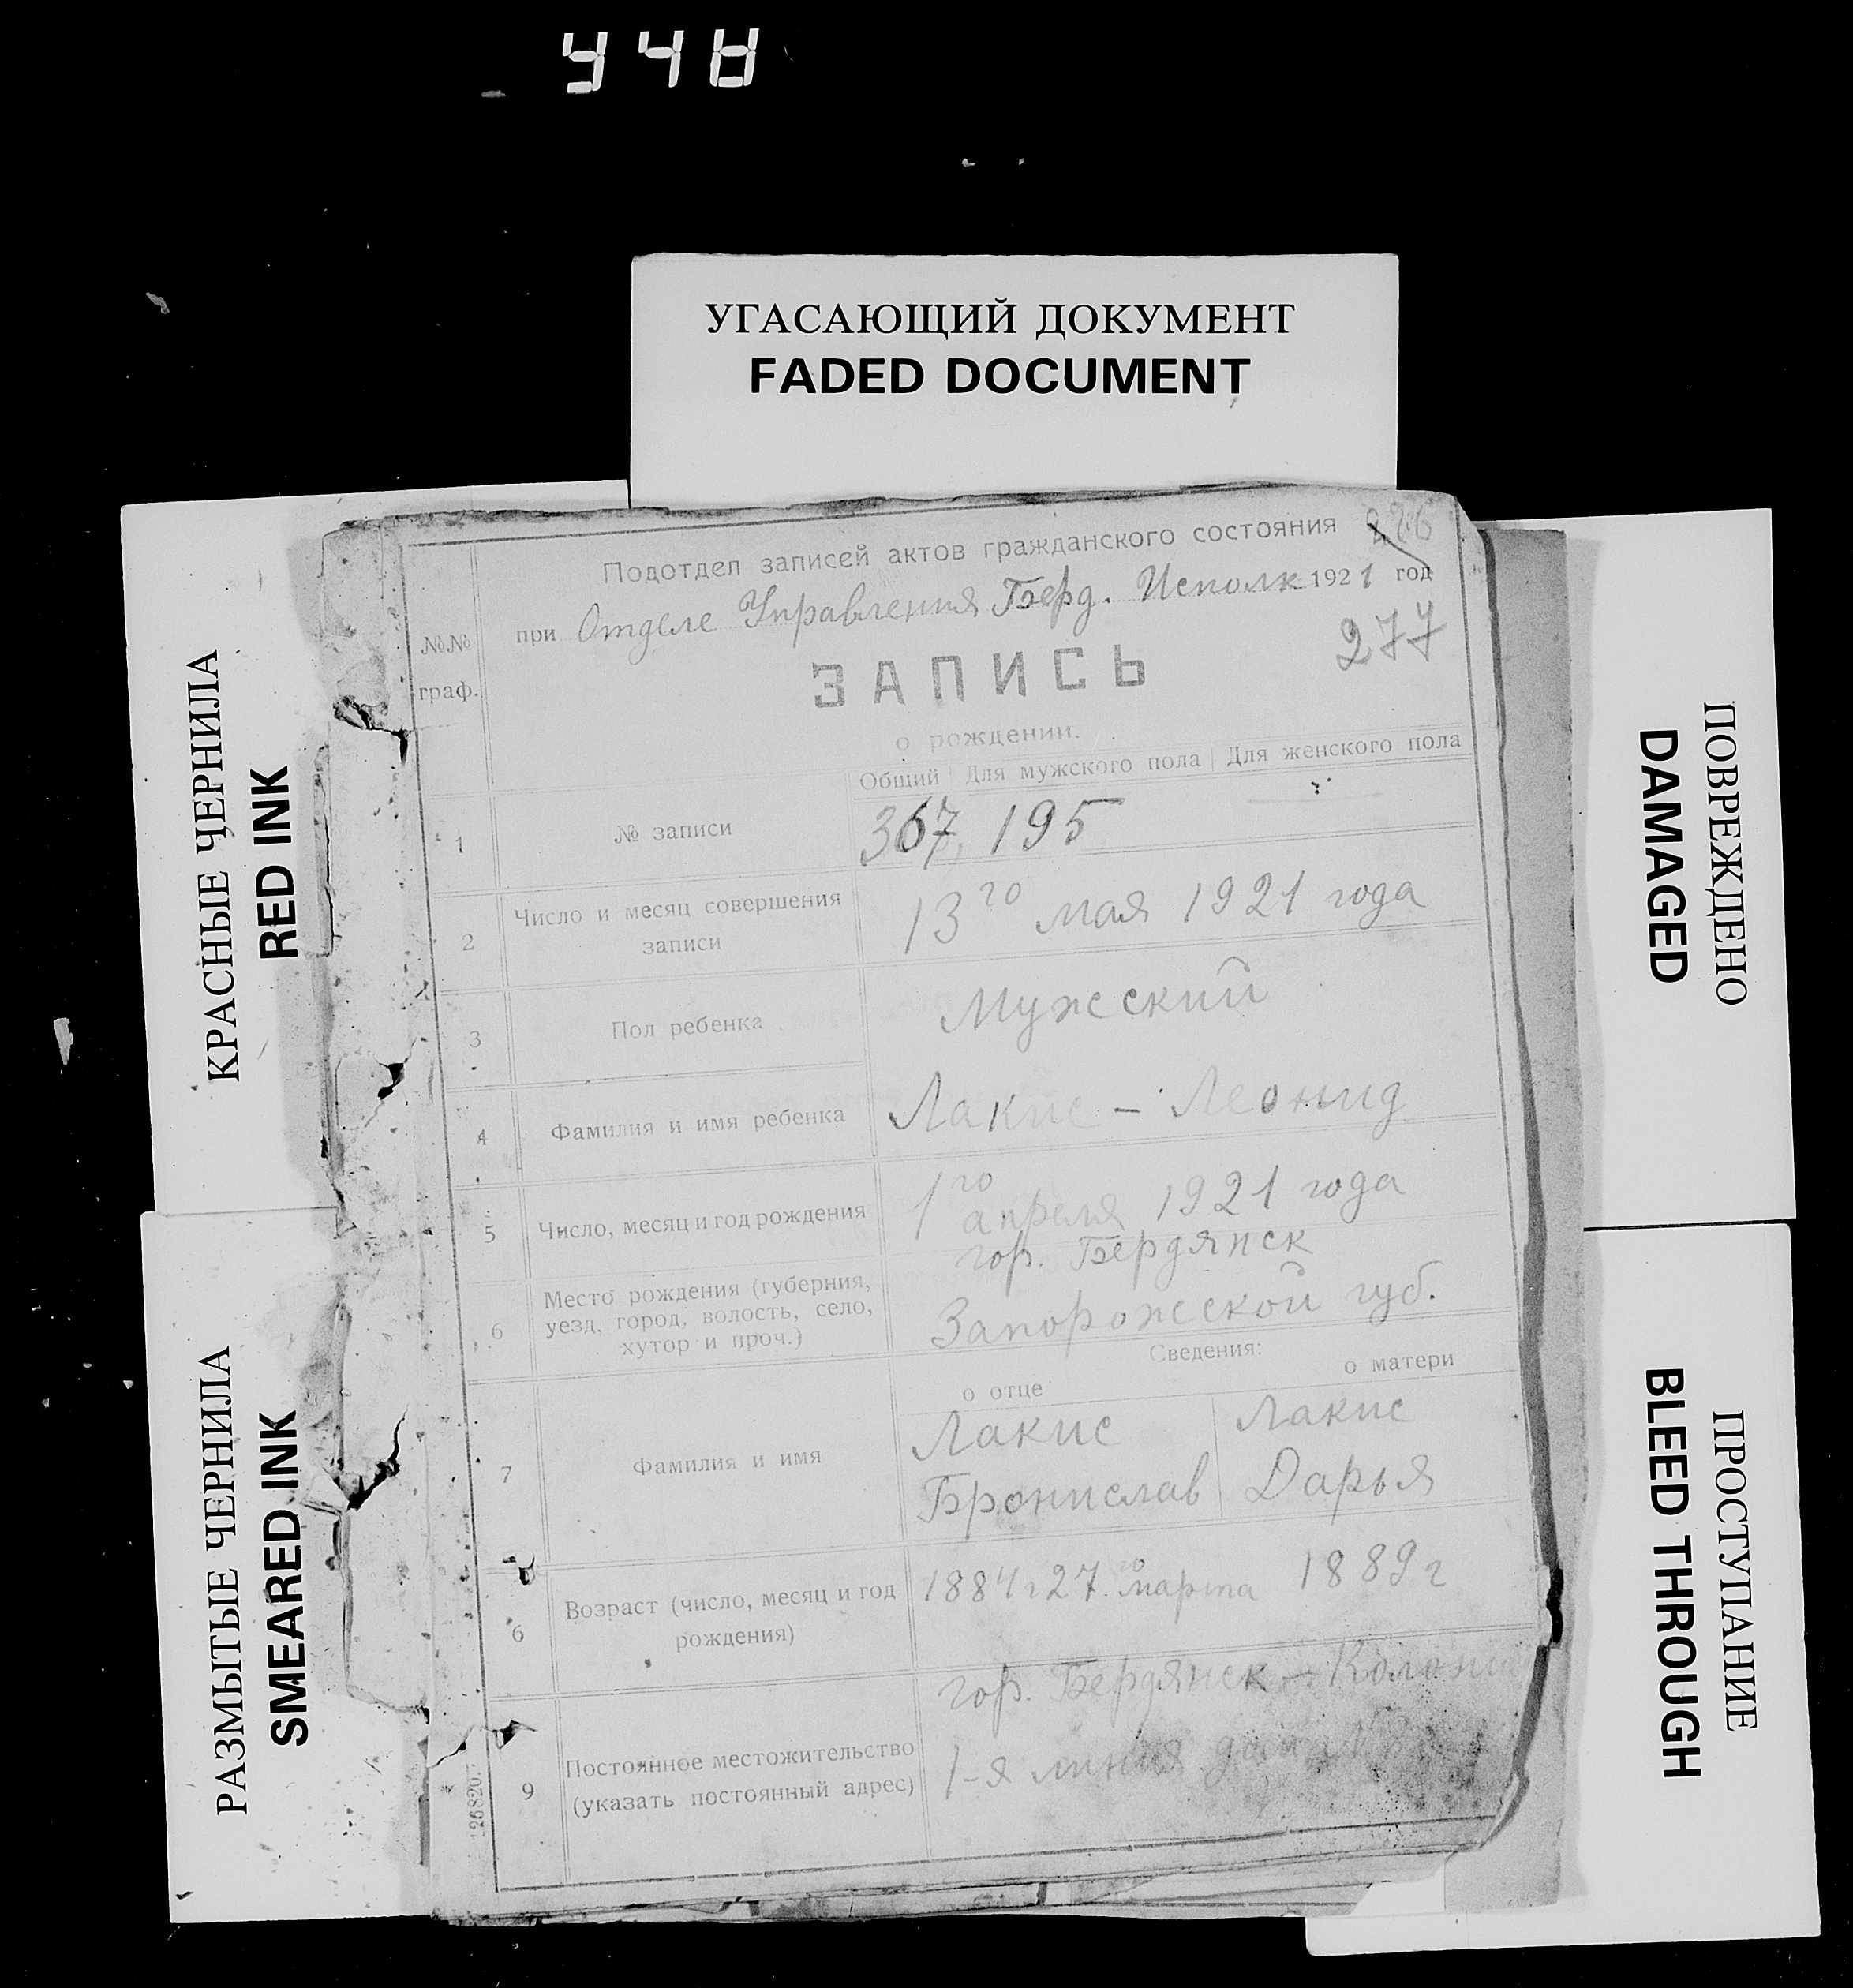 448
УГАСАЮЩИЙ ДОКУМЕНТ
FADED DOCUMENT
КРАСНЫЕ ЧЕРНИЛА
RED INK
РАЗМЫТЫЕ ЧЕРНИЛА
SMEARED INK
ПОВРЕЖДЕНО
DAMAGED
ПРОСТУПАНИЕ
BLEED THROUGH
Подотдел записей актов гражданского состояния
при Отделе Управления Берд. Исполк 1921 год
277
№№
граф.
ЗАПИСЬ
о рождении.
Общий Для мужского пола Для женского пола
1 № записи 367, 195
2 Число и месяц совершения записи 13го мая 1921 года
3 Пол ребенка Мужский
4 Фамилия и имя ребенка Лакис - Леонид
5 Число, месяц и год рождения 1го апреля 1921 года
6 Место рождения (губерния, гор. Бердянск
уезд, город, волость, село, Запорожской губ.
хутор и проч.)
Сведения:
о отце о матери
Лакис Лакис
7 Фамилия и имя
Бронислав Дарья
6 Возраст (число, месяц и год 1884 г 27го марта 1889 г
рождения)
гор. Бердянск - Колония
9 Постоянное местожительство 1-я линия
(указать постоянный адрес)